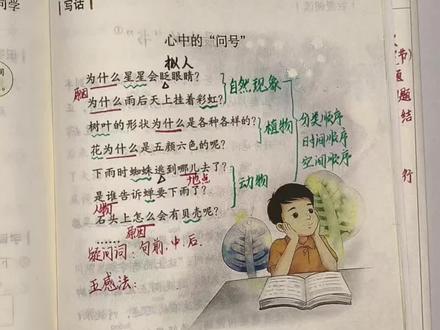 写话
心中的“问号”
拟人
为什么星星会眨眼睛?
原因
为什么雨后天上挂着彩虹?
自然现象
树叶的形状为什么是各种各样的?
花为什么是五颜六色的呢?
植物
分类顺序
时间顺序
空间顺序
下雨时蜘蛛逃到哪儿去了?
地点
是谁告诉蝉要下雨了?
人物
动物
石头上怎么会有贝壳呢?
原因
……
疑问词:句前.中.后.
五感法:
节
题
结
行